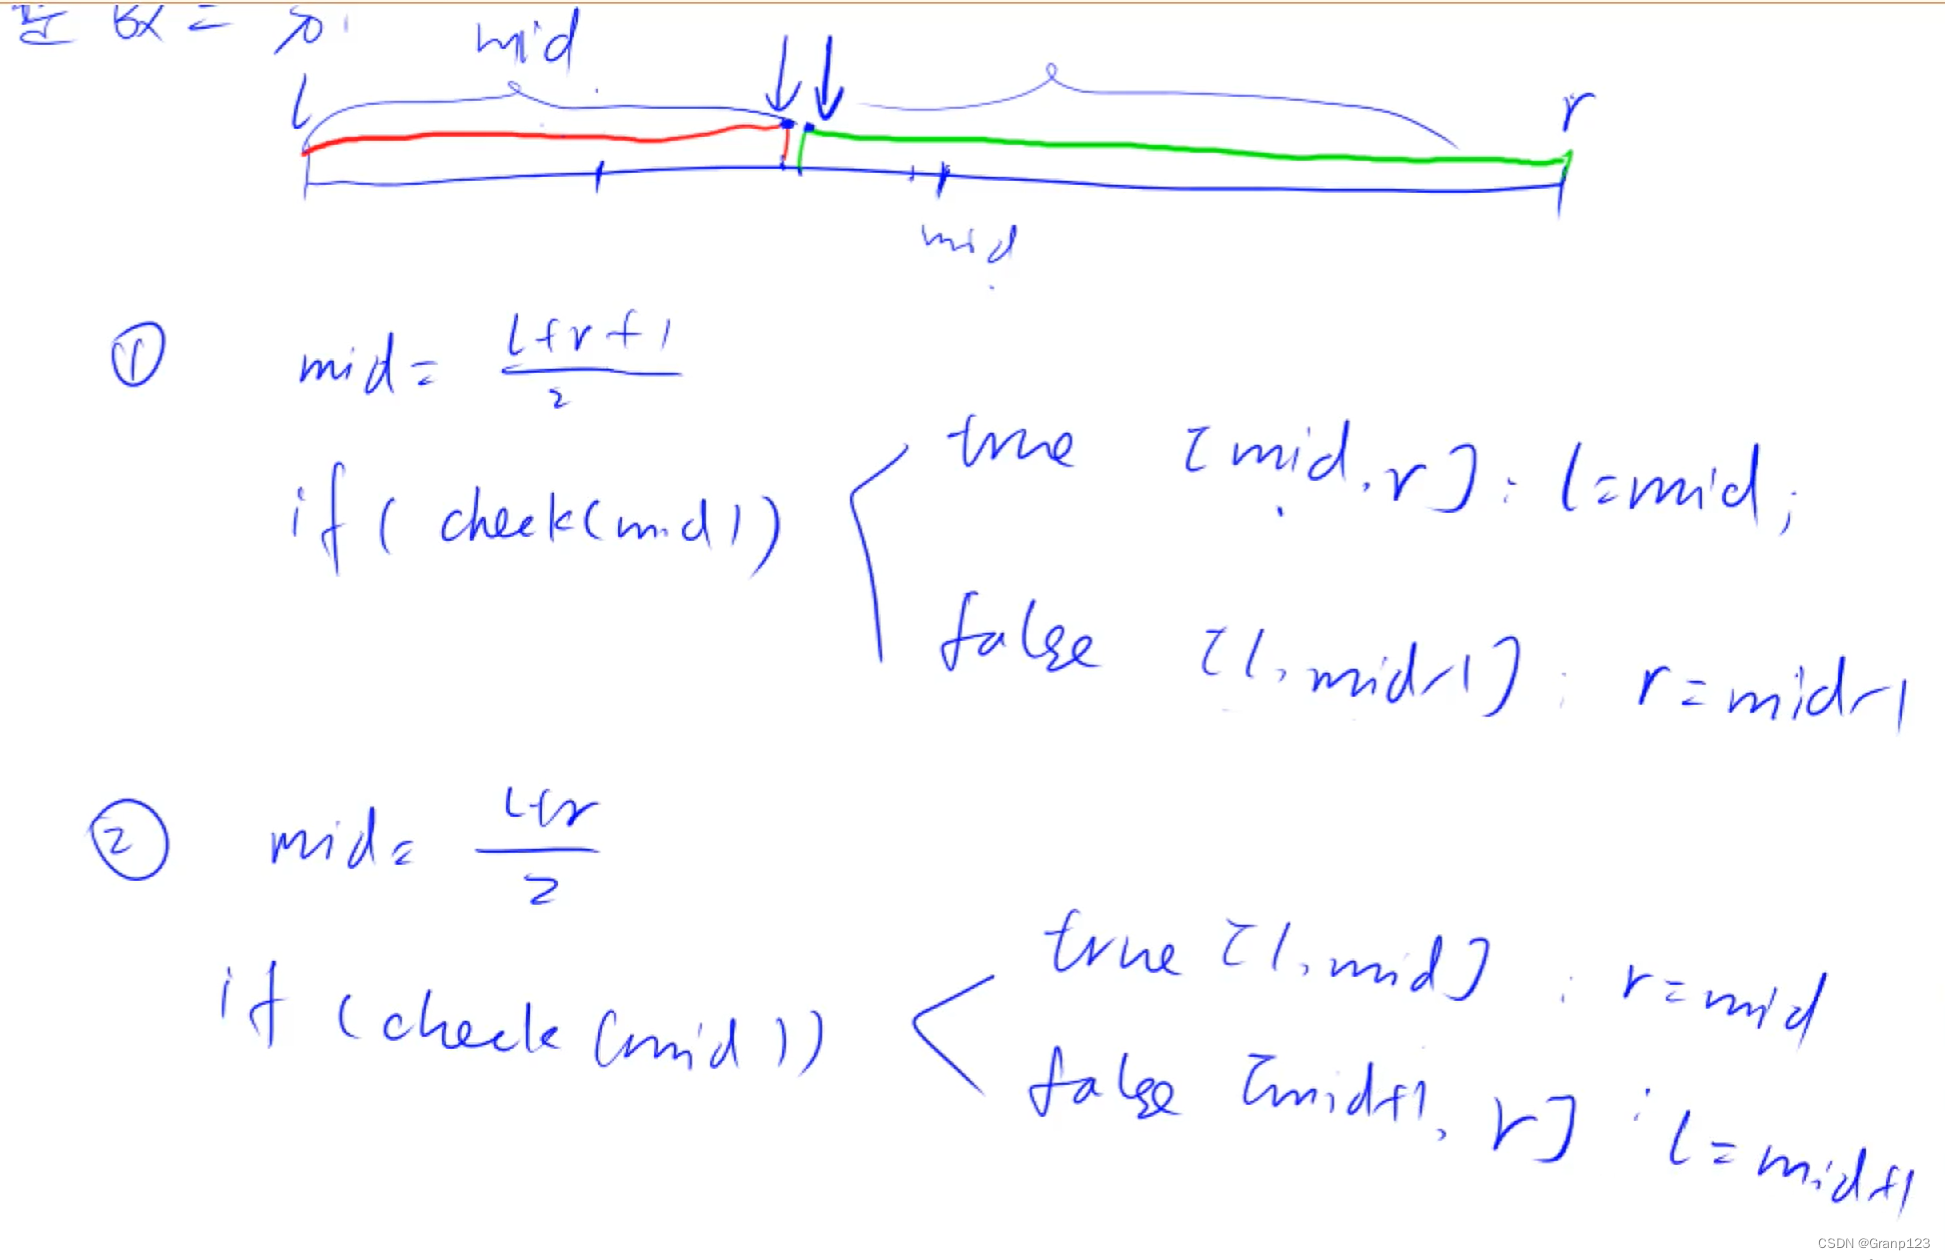 整数二分
mid
l r
mid
① mid = (l+r+1)/2
if ( check(mid))
true [mid, r] : l=mid;
false [l, mid-1] : r=mid-1
② mid = (l+r)/2
if (check(mid))
true [l, mid] : r=mid
false [mid+1, r] : l=mid+1
CSDN @Granp123